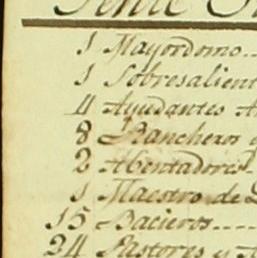 1 Mayordomo..
1 Sobresalient
4 Ayudantes A
8 Rancheros
2 Abentadores
1 Maestro de
15 Bacieros....
24 Pastores y A